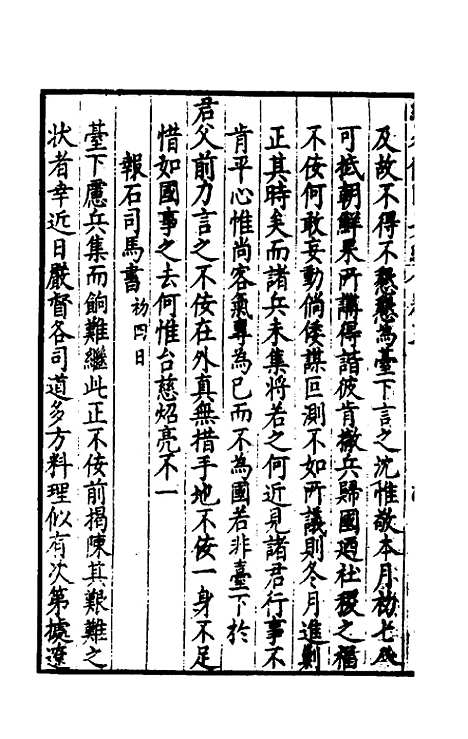 及故不得不懇懇為臺下言之沈惟敬本月初七八
可抵朝鮮果所講得諧彼肯撤兵歸國廼社稷之福
不佞何敢妄動倘倭謀叵測不如所議則冬月進剿
正其時矣而諸兵未集將若之何近見諸君行事不
肯平心惟尚客氣專為已而不為國若非臺下於
君父前力言之不佞在外真無措手地不佞一身不足
惜如國事之去何惟台慈炤亮不一
報石司馬書 初四日
臺下慮兵集而餉難繼此正不佞前揭陳其艱難之
狀者幸近日嚴督各司道多方料理似有次第據遼